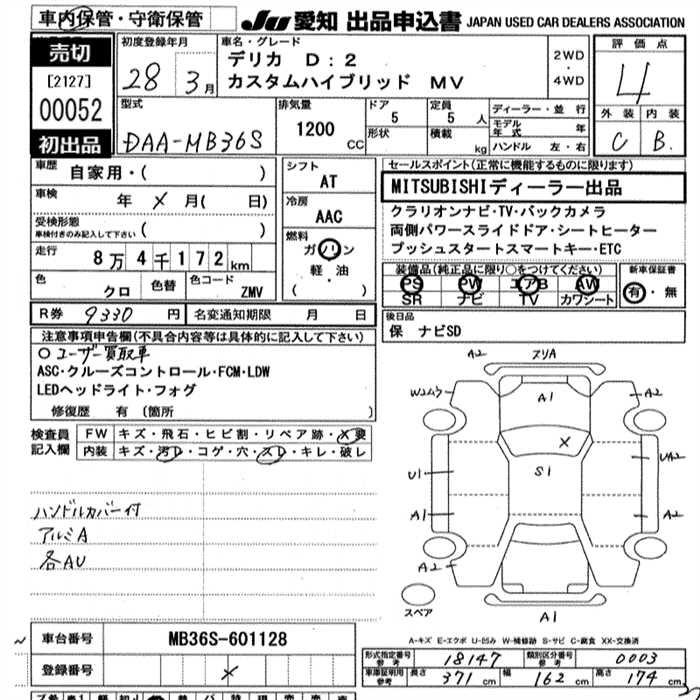 車内保管・守衛保管
JU 愛知 出品申込書 JAPAN USED CAR DEALERS ASSOCIATION
売切
[2127]
00052
初出品
初度登録年月
28 3月
車名・グレード
デリカ D:2
カスタムハイブリッド MV
2WD
・
4WD
評価点
4
外装 内装
C B.
型式
DAA-MB36S
排気量
1200 CC
ドア
5
形状
定員
5 人
積載
kg
ディーラー・並行
モデル年式 年
ハンドル 左・右
車歴
自家用・( )
車検
年 × 月( 日)
受検形態
車検付きのみ記入して下さい ( )
走行
8万4千172km
色
クロ
色替
色コード
ZMV
シフト
AT
冷房
AAC
燃料
ガソリン
軽・油
( ・ )
セールスポイント(正常に機能するものに限ります)
MITSUBISHIディーラー出品
クラリオンナビ・TV・バックカメラ
両側パワースライドドア・シートヒーター
プッシュスタートスマートキー・ETC
装備品(純正品に限り○をつけてください)
PS PW エアB AW
SR ナビ TV カワシート
新車保証書
有・無
R券 9330 円
名変通知期限 月 日
後日品
保 ナビSD
注意事項申告欄(不具合内容等は具体的に記入して下さい)
○ユーザー買取車
ASC・クルーズコントロール・FCM・LDW
LEDヘッドライト・フォグ
修復歴 有(箇所 )
検査員
記入欄
FW キズ・飛石・ヒビ割・リペア跡・X要
内装 キズ・汚レ・コゲ・穴・スレ・キレ・破レ
ハンドルカバー付
アルミA
各AU
A2 スリA
Wコムラ A1 A2
×
U1 S1 UA2
A1 A2
A2
スペア
A1
A-キズ E-エクボ U-凹み W-補修跡 S-サビ C-腐食 XX-交換済
~
車台番号 MB36S-601128
登録番号 ×
形式指定番号
参考
18147
類別区分番号
参考
0003
車庫証明用
参考
長さ 371 cm 幅 162 cm 高さ 174 cm